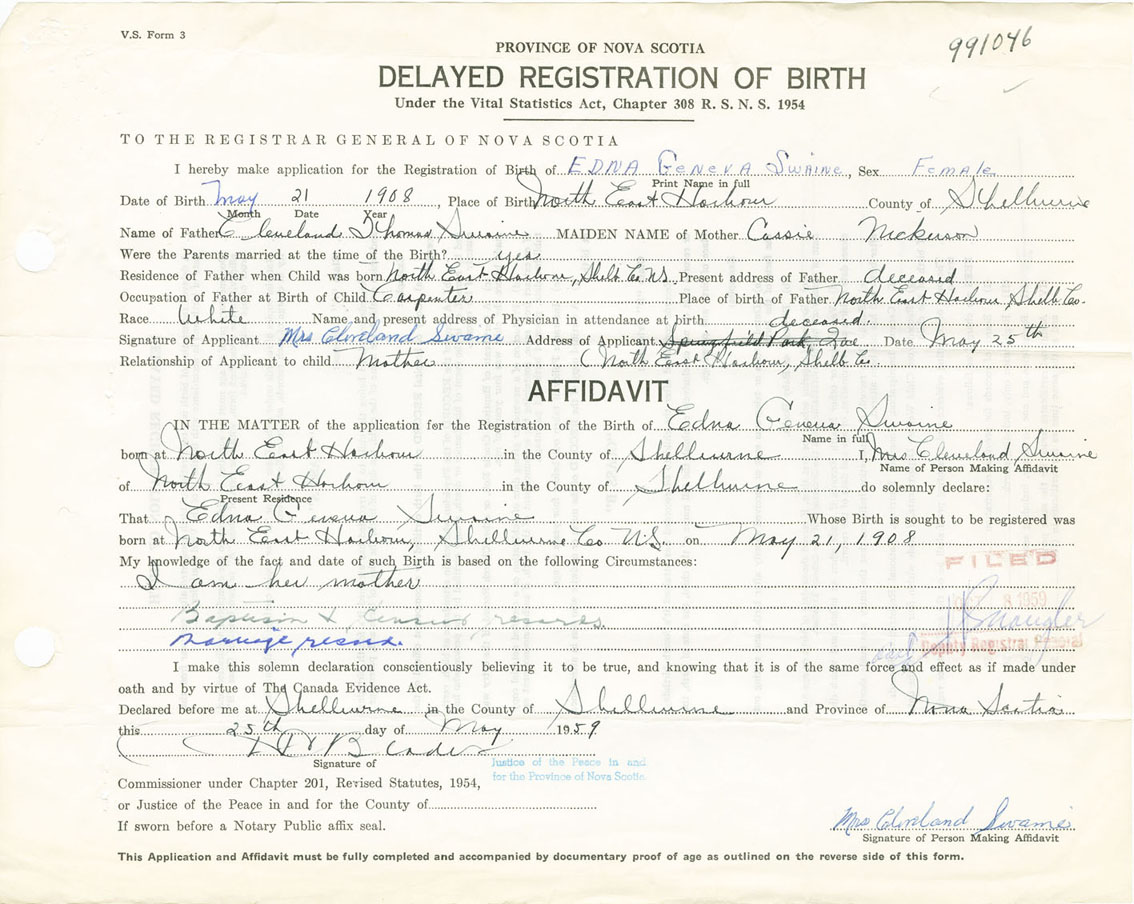 V.S. Form 3
991046
PROVINCE OF NOVA SCOTIA
DELAYED REGISTRATION OF BIRTH
Under the Vital Statistics Act, Chapter 308 R. S. N. S. 1954
TO THE REGISTRAR GENERAL OF NOVA SCOTIA
I hereby make application for the Registration of Birth of EDNA GENEVA SWAINE, Sex Female
Print Name in full
Date of Birth May 21 1908, Place of Birth North East Harbour County of Shelburne
Month Date Year
Name of Father Cleveland Thomas Swaine MAIDEN NAME of Mother Cassie Nickerson
Were the Parents married at the time of the Birth? yes
Residence of Father when Child was born North East Harbour, Shelb Co NS. Present address of Father deceased
Occupation of Father at Birth of Child Carpenter Place of birth of Father North East Harbour, Shelb Co.
Race White Name and present address of Physician in attendance at birth deceased.
Signature of Applicant Mrs Cleveland Swaine Address of Applicant Springfield Park, Date May 25th
Relationship of Applicant to child Mother (North East Harbour, Shelb Co.
AFFIDAVIT
IN THE MATTER of the application for the Registration of the Birth of Edna Geneva Swaine
Name in full
born at North East Harbour in the County of Shelburne I, Mrs Cleveland Swaine
Name of Person Making Affidavit
of North East Harbour in the County of Shelburne do solemnly declare:
Present Residence
That Edna Geneva Swaine Whose Birth is sought to be registered was
born at North East Harbour, Shelburne Co N.S. on May 21, 1908
My knowledge of the fact and date of such Birth is based on the following Circumstances:
FILED
I am her mother
8 1959
Baptism & Census records.
Marriage record.
Deputy Registrar General
I make this solemn declaration conscientiously believing it to be true, and knowing that it is of the same force and effect as if made under
oath and by virtue of The Canada Evidence Act.
Declared before me at Shelburne in the County of Shelburne and Province of Nova Scotia
this 25th day of May 1959
Signature of
Justice of the Peace in and
for the Province of Nova Scotia.
Commissioner under Chapter 201, Revised Statutes, 1954,
or Justice of the Peace in and for the County of
If sworn before a Notary Public affix seal.
Mrs Cleveland Swaine
Signature of Person Making Affidavit
This Application and Affidavit must be fully completed and accompanied by documentary proof of age as outlined on the reverse side of this form.